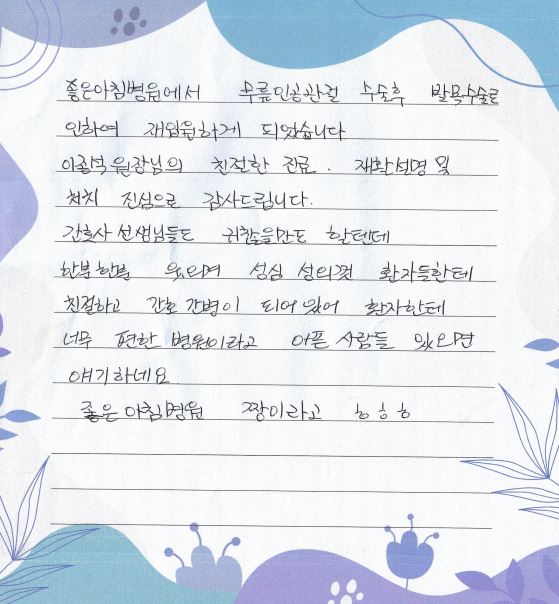 좋은아침병원에서 무릎인공관절 수술후 발목수술로
인하여 재입원하게 되었습니다
이종석 원장님의 친절한 진료. 재활설명 및
처치 진심으로 감사드립니다.
간호사 선생님들도 귀찮을만도 할텐데
한분한분 웃으며 성심 성의껏 환자들한테
친절하고 간호 간병이 되어 있어 환자한테
너무 편한 병원이라고 아픈 사람들 있으면
얘기하네요
좋은아침병원 짱이라고 ㅎㅎㅎ